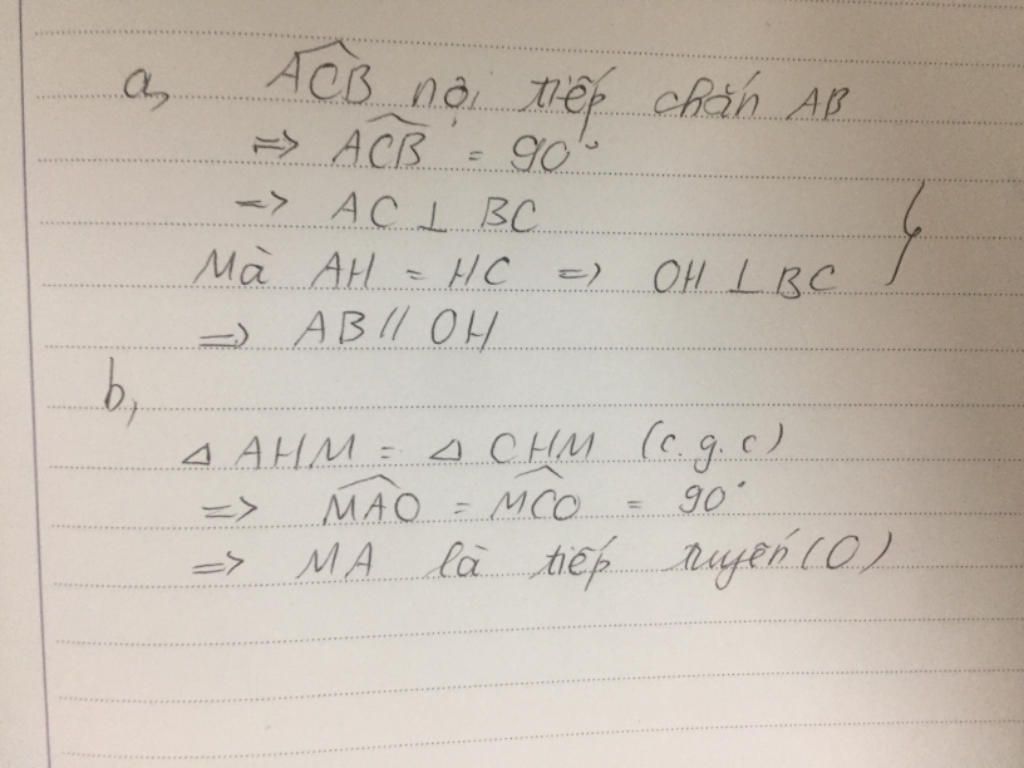 a, \widehat{ACB} nội tiếp chắn AB
=> \widehat{ACB} = 90°
=> AC ⊥ BC
Mà AH = HC => OH ⊥ BC }
=> AB // OH
b,
△ AHM = △ CHM (c.g.c)
=> \widehat{MAO} = \widehat{MCO} = 90°
=> MA là tiếp tuyến (O)